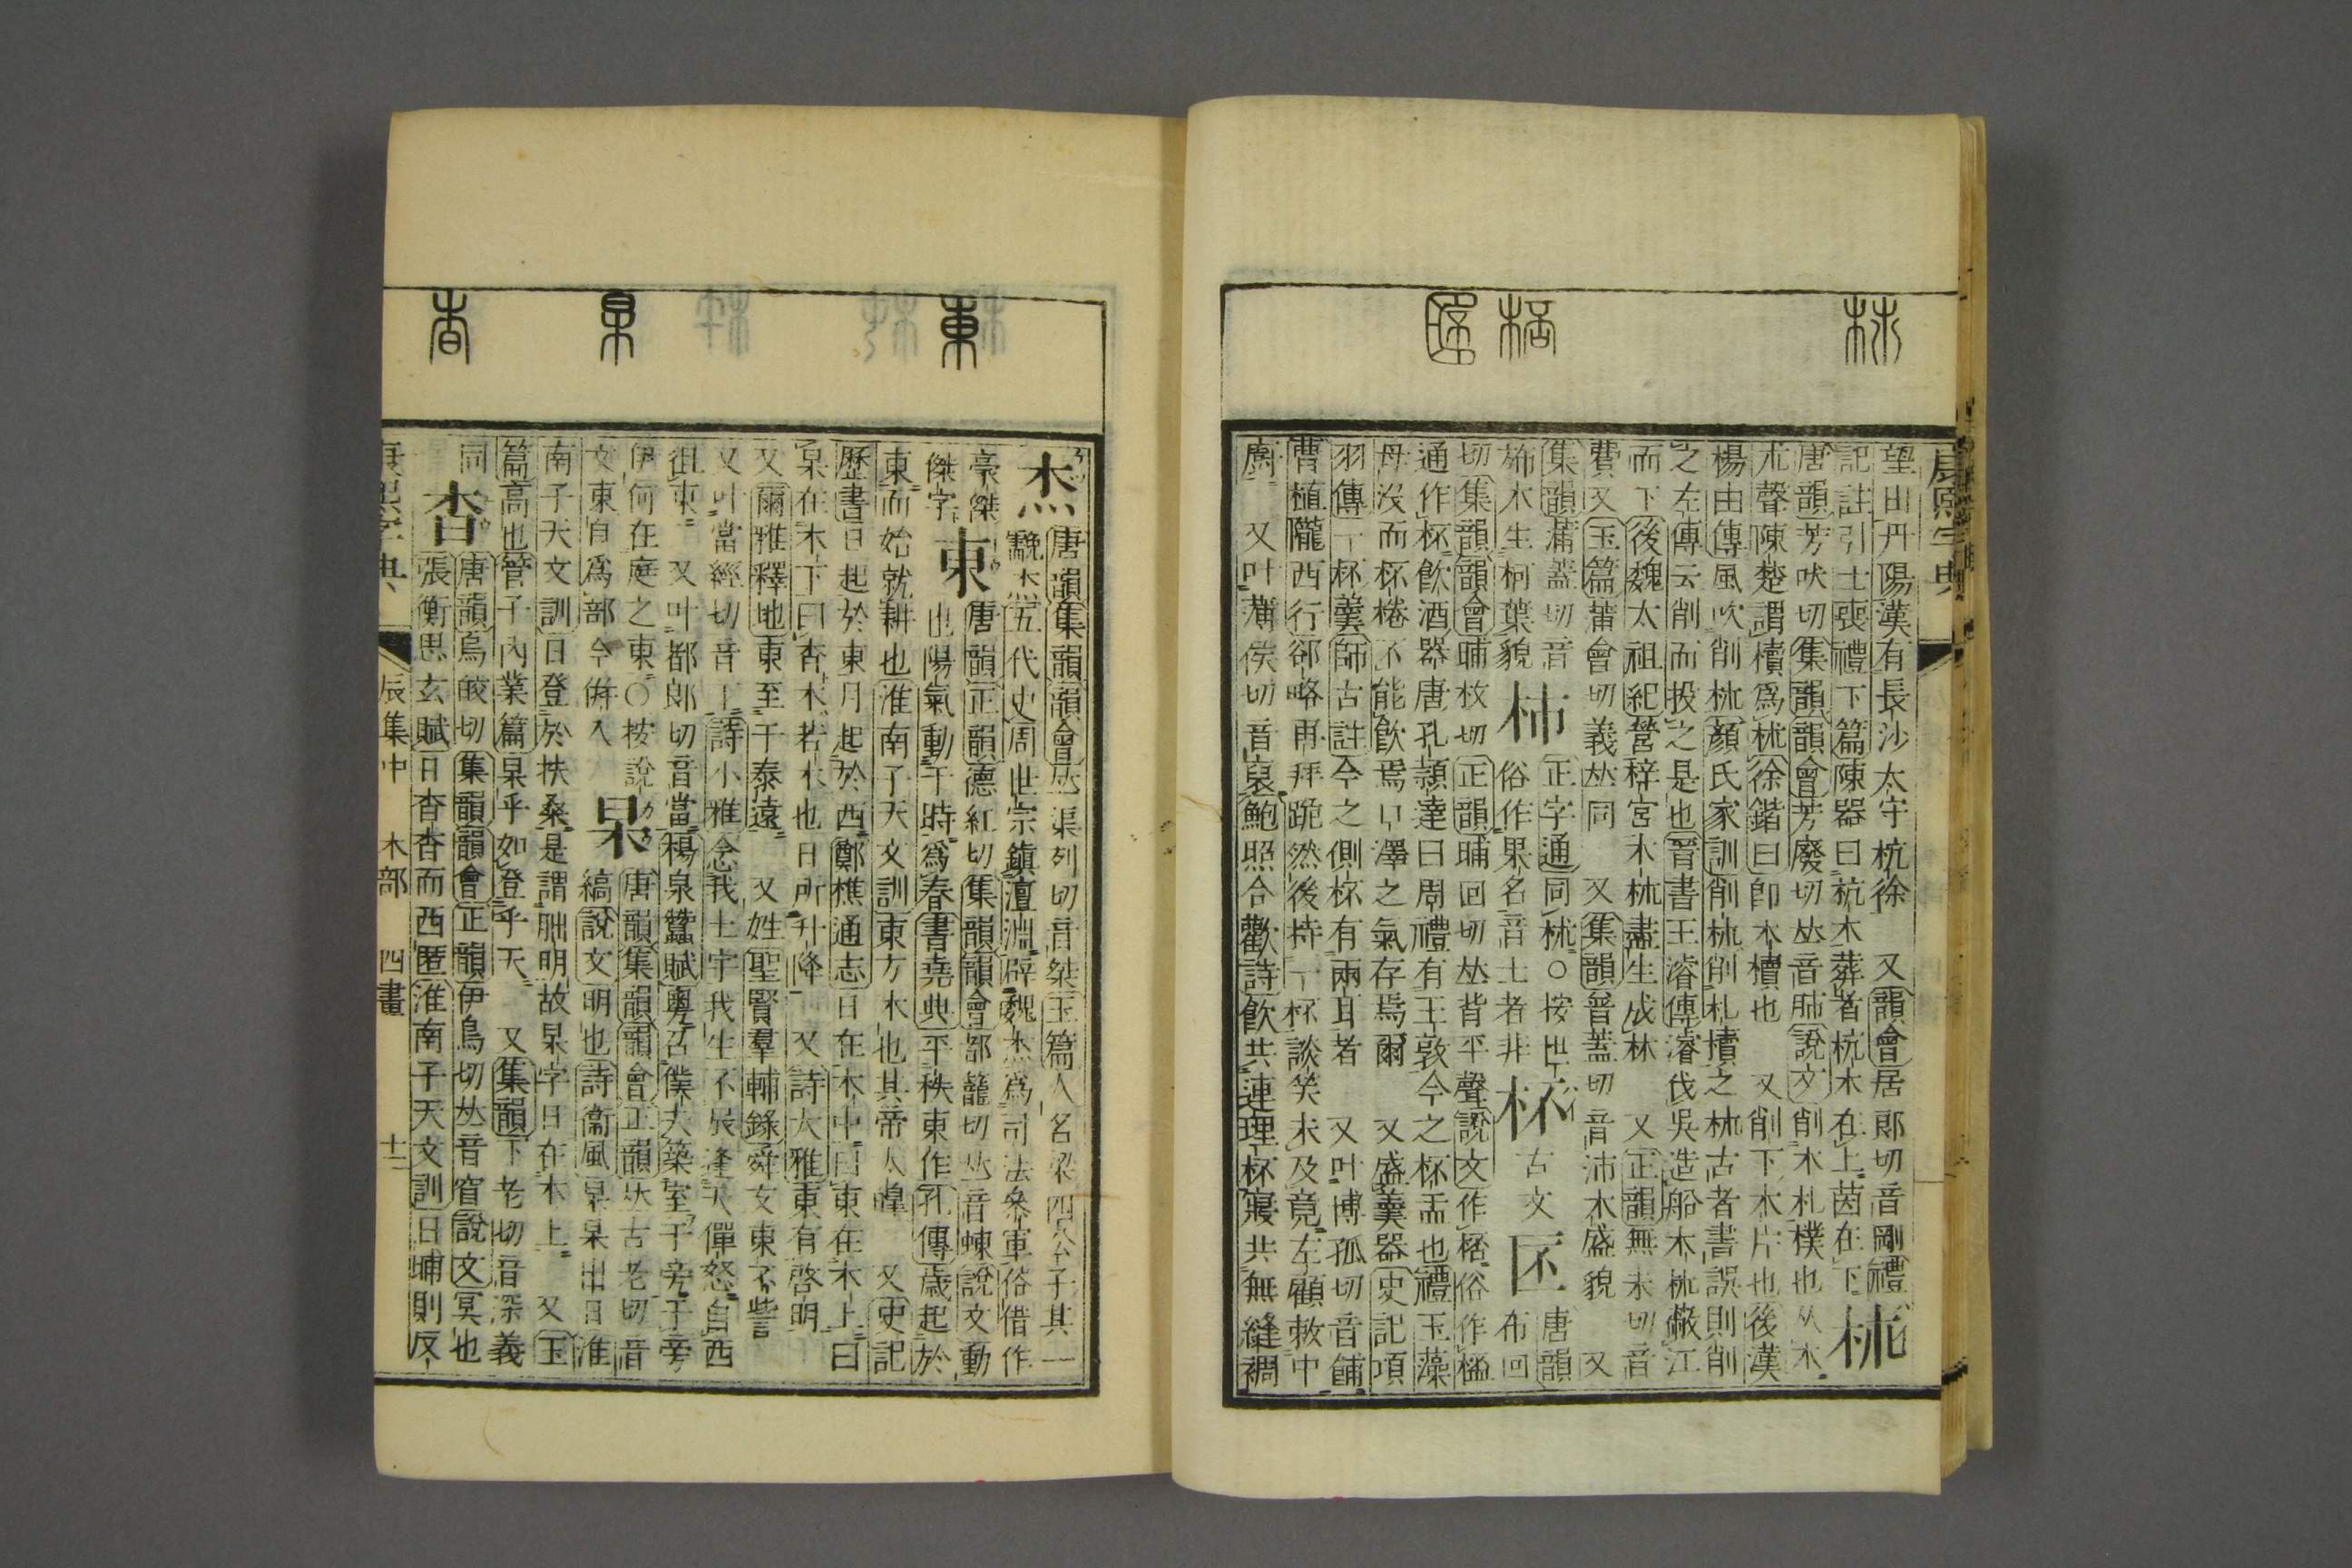 康熙字典
望山丹陽漢有長沙太守杭徐 又韻會居郎切音剛禮
記註引士喪禮下篇陳器曰杭木葬者杭木在上茵在下 杮
唐韻芳吠切集韻韻會芳廢切𠀤音肺說文削木札樸也从木
𣎵聲陳楚謂櫝爲杮徐鍇曰卽木櫝也 又削下木片也後漢
楊由傳風吹削杮顏氏家訓削杮削札牘之杮古者書誤則削
之左傳云削而投之是也晉書王濬傳濬伐吳造船木杮蔽江
而下後魏太祖紀營梓宮木杮盡生成林 又正韻無未切音
費又玉篇蒲會切義𠀤同 又集韻普蓋切音沛木盛貌 又
集韻蒲蓋切音
旆木生柯葉貌
杮 正字通同杮○按世
俗作果名音士者非
杯 古文 𠥓 唐韻
布回
切集韻韻會晡枚切正韻晡回切𠀤背平聲說文作桮俗作盃
通作杯飮酒器唐孔潁達曰周禮有王敦今之杯盂也禮玉藻
母沒而杯棬不能飮焉口澤之氣存焉爾 又盛羹器史記項
羽傳一杯羹師古註今之側杯有兩耳者 又叶博孤切音餔
曹植隴西行郤略再拜跪然後持一杯談笑未及竟左顧敕中
廚 又叶薄侯切音裒鮑照合歡詩飮共連理杯寢共無縫裯
杰 唐韻集韻韻會𠀤渠列切音桀玉篇人名梁四公子其一
䨲杰五代史周世宗鎮澶淵辟魏杰爲司法參軍俗借作
豪傑
傑字
東 唐韻正韻德紅切集韻韻會都籠切𠀤音蝀說文動
也陽氣動于時爲春書堯典平秩東作孔傳歲起於
東而始就耕也淮南子天文訓東方木也其帝太皞 又史記
歷書日起於東月起於西鄭樵通志日在木中曰東在木上曰
杲在木下曰杳木若木也日所升降 又詩大雅東有啓明
又爾雅釋地東至于泰遠 又姓聖賢羣輔錄舜友東不訾
又叶當經切音丁詩小雅念我土宇我生不辰逢天僤怒自西
徂東 又叶都郎切音當楊泉蠶賦粵召僕夫築室于旁于旁
伊何在庭之東○按說
文東自爲部今倂入
杲 唐韻集韻韻會正韻𠀤古老切音
縞說文明也詩衞風杲杲出日淮
南子天文訓日登於扶桑是謂朏明故杲字日在木上 又玉
篇高也管子內業篇杲乎如登乎天 又集韻下老切音深義
同
杳 唐韻烏皎切集韻韻會正韻伊鳥切𠀤音窅說文冥也
張衡思玄賦日杳杳而西匿淮南子天文訓日晡則反
康熙字典 辰集中 木部 四畫 十二